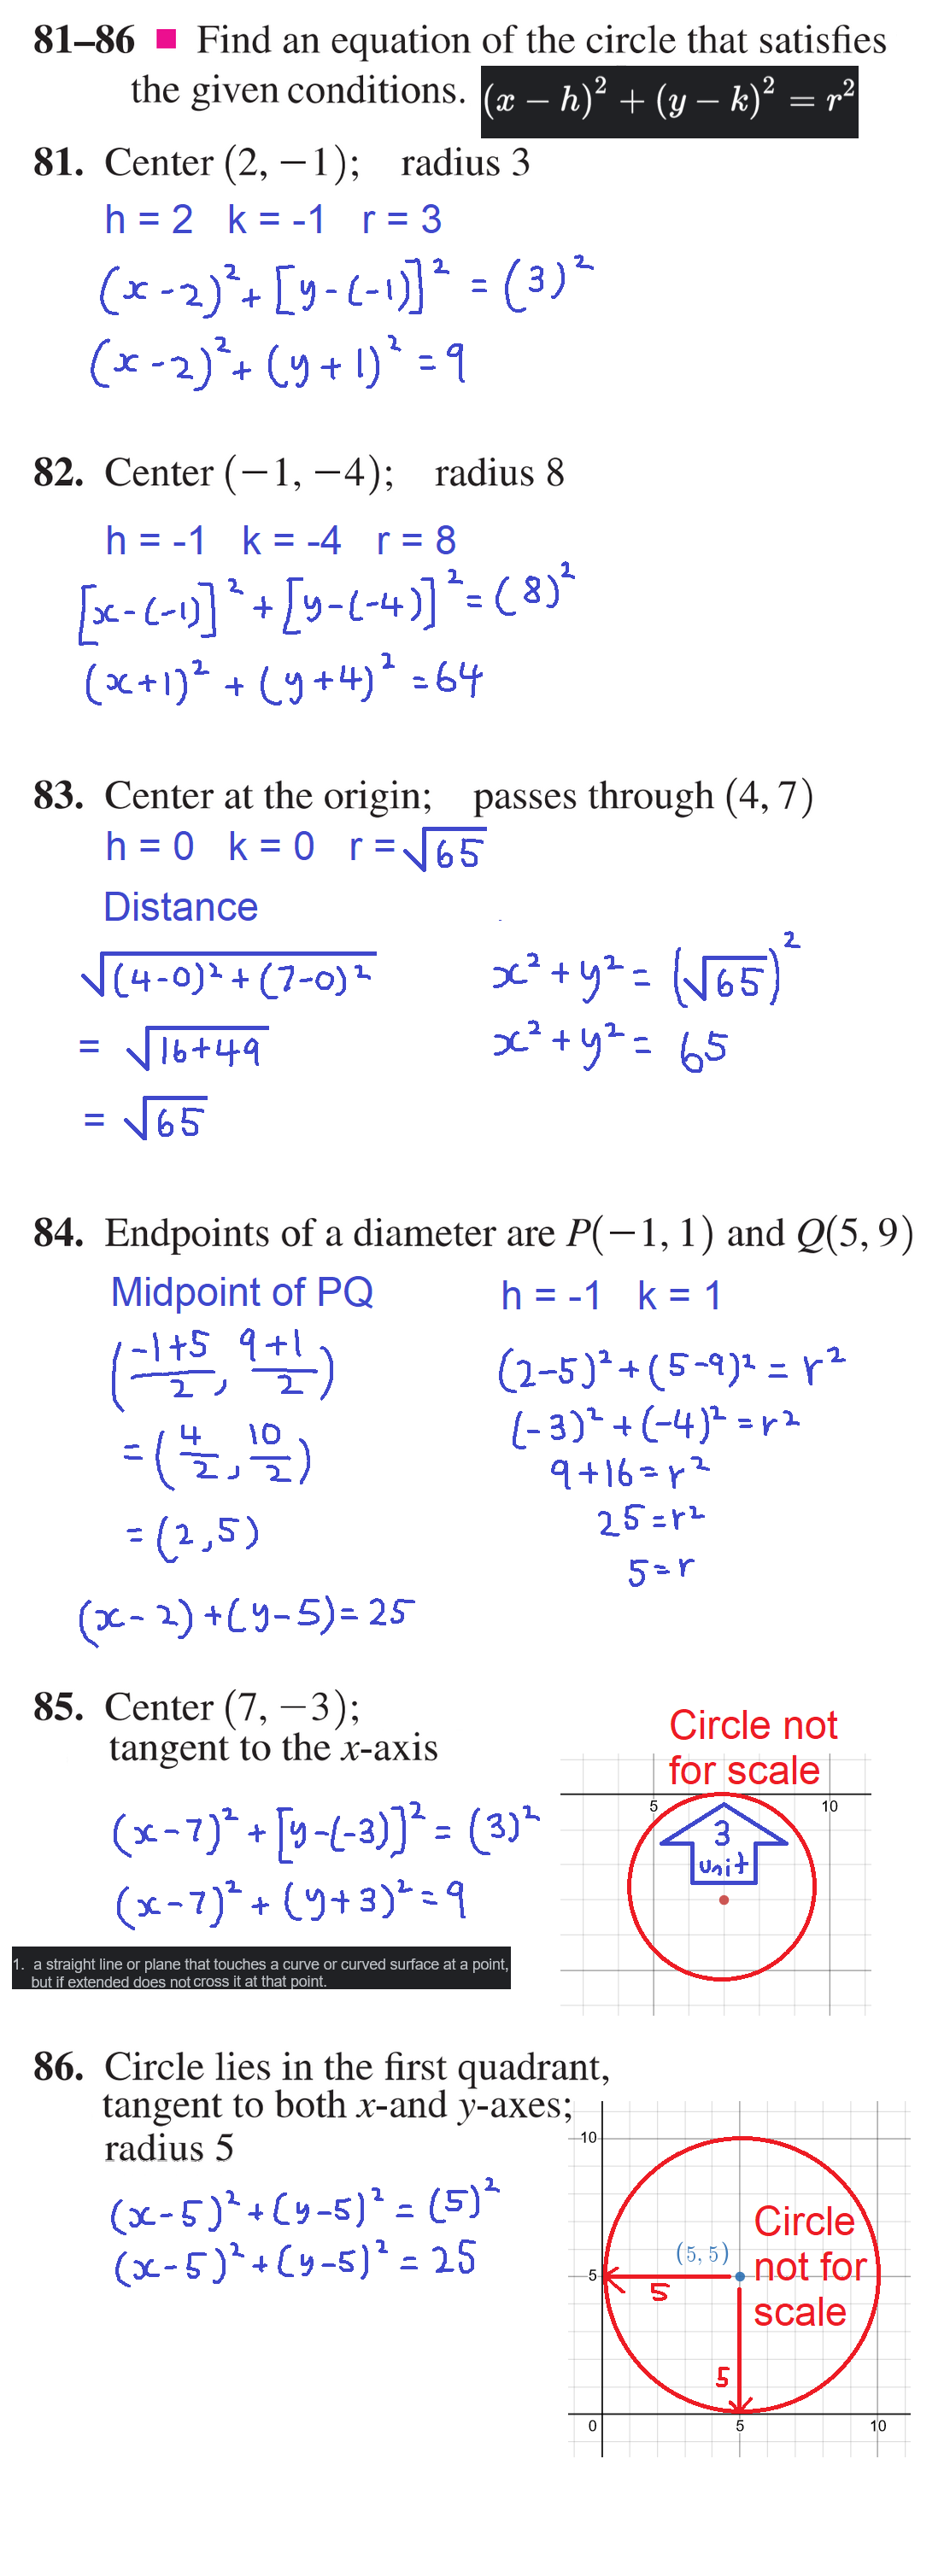 81–86 ■ Find an equation of the circle that satisfies
the given conditions. (x − h)² + (y − k)² = r²
81. Center (2, −1); radius 3
h = 2 k = -1 r = 3
(x-2)²+[y-(-1)]² = (3)²
(x-2)²+(y+1)² = 9
82. Center (−1, −4); radius 8
h = -1 k = -4 r = 8
[x-(-1)]²+[y-(-4)]²=(8)²
(x+1)²+(y+4)²=64
83. Center at the origin; passes through (4, 7)
h = 0 k = 0 r = √65
Distance
√(4-0)²+(7-0)²
= √16+49
= √65
x²+y²=(√65)²
x²+y²= 65
84. Endpoints of a diameter are P(−1, 1) and Q(5, 9)
Midpoint of PQ
(-1+5/2, 9+1/2)
=(4/2, 10/2)
=(2,5)
h = -1 k = 1
(2-5)²+(5-9)²=r²
(-3)²+(-4)²=r²
9+16=r²
25=r²
5=r
(x-2)+(y-5)=25
85. Center (7, −3);
tangent to the x-axis
(x-7)²+[y-(-3)]²=(3)²
(x-7)²+(y+3)²=9
1. a straight line or plane that touches a curve or curved surface at a point,
but if extended does not cross it at that point.
Circle not
for scale
5 10
3
unit
86. Circle lies in the first quadrant,
tangent to both x-and y-axes;
radius 5
(x-5)²+(y-5)²=(5)²
(x-5)²+(y-5)²=25
10
Circle
(5, 5)
not for
5
5
scale
5
0 5 10